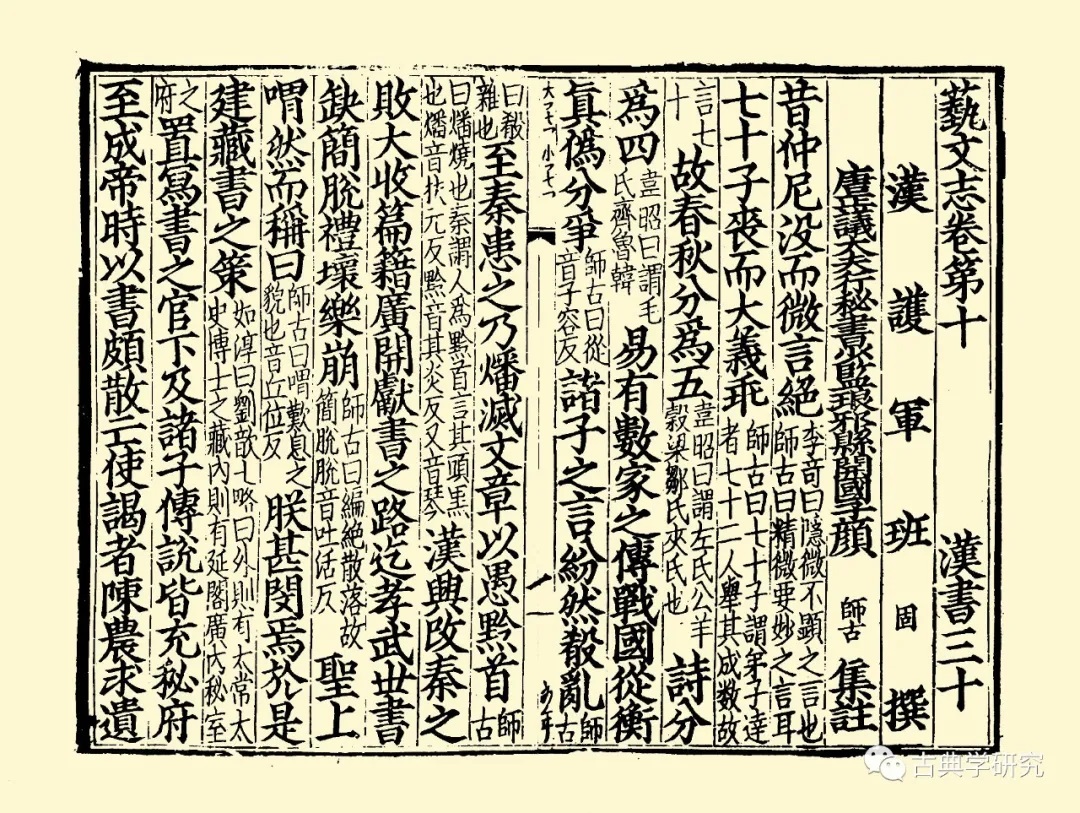 藝文志卷第十 漢書三十
漢護軍班固撰
唐正議大夫行祕書少監琅邪縣開國子顏師古集註
昔仲尼没而微言絶李竒曰隱微不顯之言也師古曰精微要妙之言耳
七十子喪而大義乖師古曰七十子謂弟子逹者七十二人舉其成數故
言七十故春秋分爲五韋昭曰謂左氏公羊穀梁鄒氏夾氏也詩分
爲四韋昭曰謂毛氏齊魯韓易有數家之傳戰國從衡
眞僞分爭師古曰從音子容反諸子之言紛然殽亂師古
曰殽雜也至秦患之乃燔滅文章以愚黔首師古
曰燔燒也秦謂人爲黔首言其頭黒也燔音扶元反黔音其炎反又音琴漢興改秦之
敗大收篇籍廣開獻書之路迄孝武世書
缺簡脫禮壞樂崩師古曰編絶散落故簡脫脫音吐活反聖上
喟然而稱曰師古曰喟歎息之貌也音丘位反朕甚閔焉於是
建藏書之策如淳曰劉歆七略曰外則有太常太史博士之藏内則有延閣廣内祕室
之府置寫書之官下及諸子傳説皆充祕府
至成帝時以書頗散亡使謁者陳農求遺
古典学研究